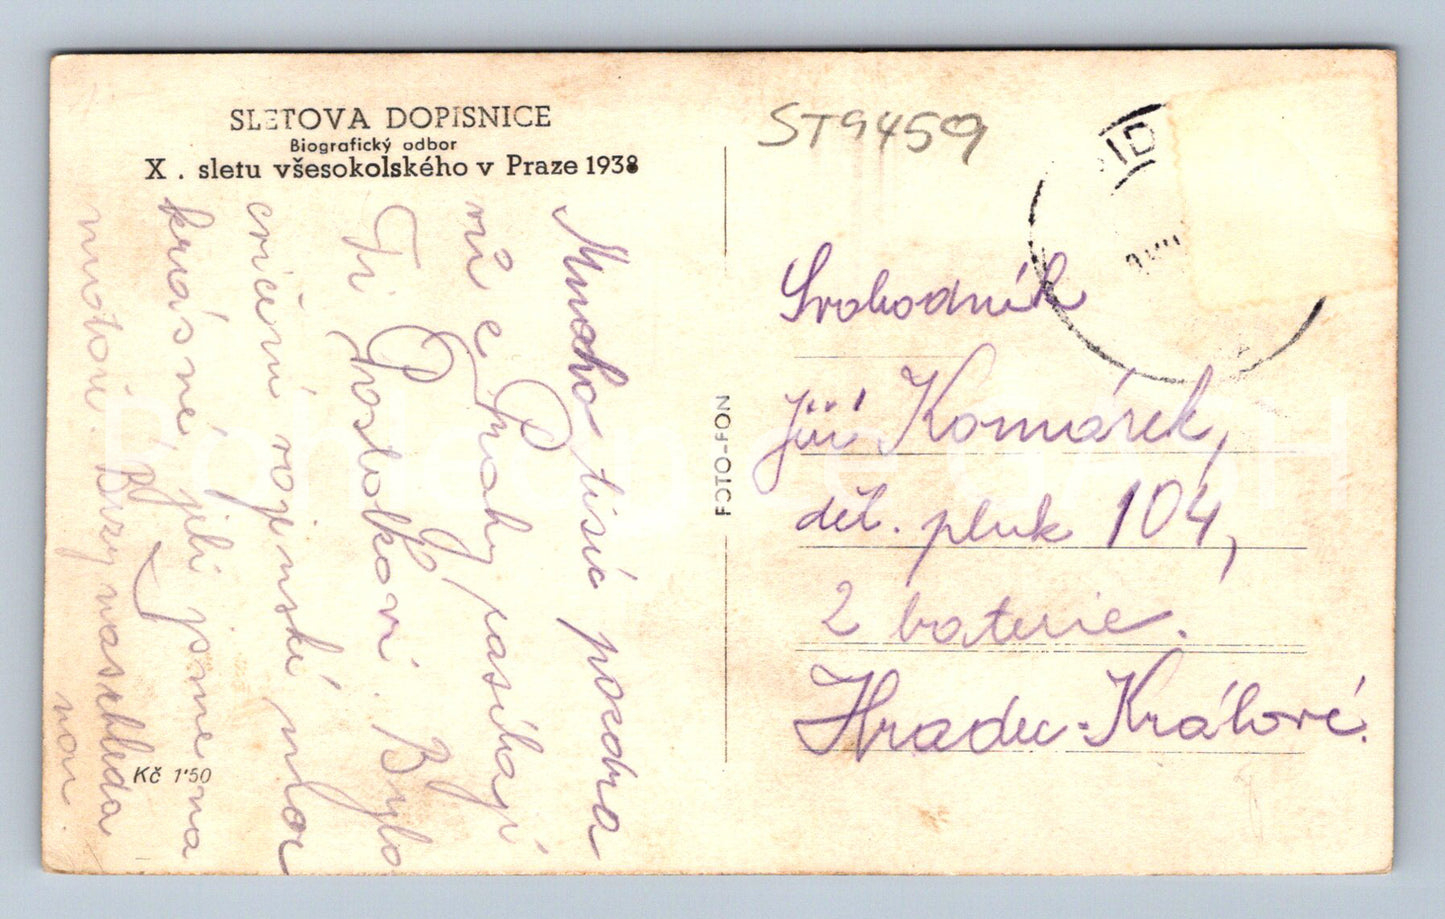 SLETOVA DOPISNICE
Biografický odbor
X. sletu všesokolského v Praze 1938
Mnoho tisíc pozdra
vů z Prahy zasílají
Ti Prostolkovi. Bylo
cvičení vojenské, mloc
krásné, jeli jsme na
motoru. Brzy naschleda
nou
Kč 1'50
FOTO-FON
ST9459
Svobodník
Jiří Komárek,
děl. pluk 104,
2 baterie.
Hradec-Králové.